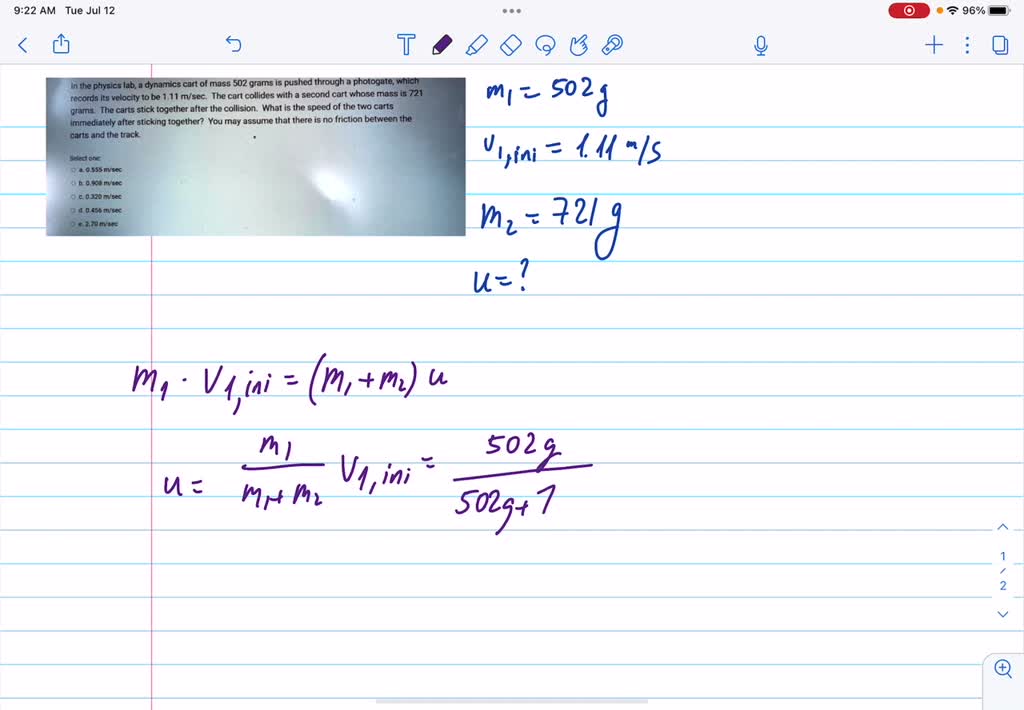 9:22 AM Tue Jul 12
96%
In the physics lab, a dynamics cart of mass 502 grams is pushed through a photogate, which
records its velocity to be 1.11 m/sec. The cart collides with a second cart whose mass is 721
grams. The carts stick together after the collision. What is the speed of the two carts
immediately after sticking together? You may assume that there is no friction between the
carts and the track.
Select one:
a. 0.555 m/sec
b. 0.908 m/sec
c. 0.320 m/sec
d. 0.456 m/sec
e. 2.70 m/sec
m₁ = 502g
v₁,ini = 1.11 m/s
m₂ = 721 g
u = ?
m₁ · v₁,ini = (m₁ + m₂) u
u = m₁ / (m₁ + m₂) v₁,ini = 502g / 502g + 7
1
/
2